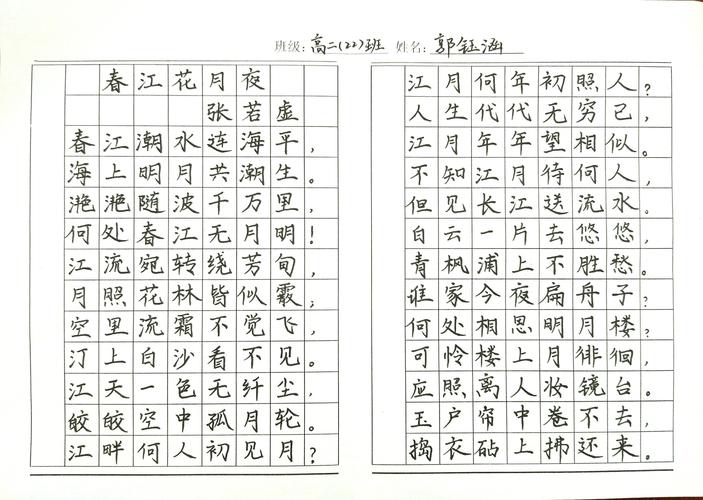 班级:高二(22)班 姓名:郭钰涵
春江花月夜
张若虚
春江潮水连海平,
海上明月共潮生。
滟滟随波千万里,
何处春江无月明!
江流宛转绕芳甸,
月照花林皆似霰;
空里流霜不觉飞,
汀上白沙看不见。
江天一色无纤尘,
皎皎空中孤月轮。
江畔何人初见月?
江月何年初照人?
人生代代无穷已,
江月年年望相似。
不知江月待何人,
但见长江送流水。
白云一片去悠悠,
青枫浦上不胜愁。
谁家今夜扁舟子?
何处相思明月楼?
可怜楼上月徘徊,
应照离人妆镜台。
玉户帘中卷不去,
捣衣砧上拂还来。